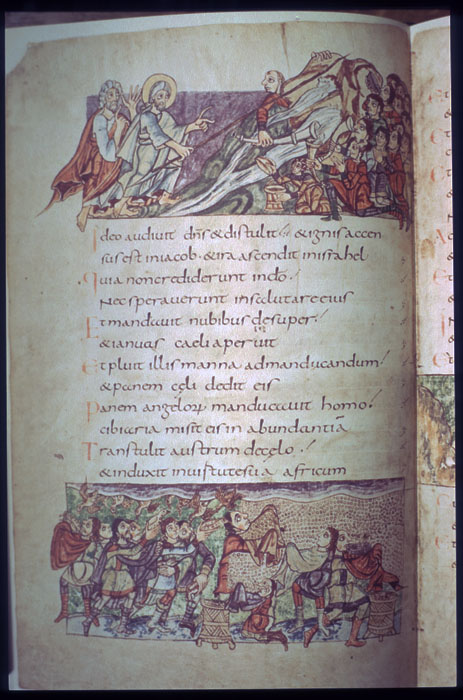 Ideo audiuit dn̄s & distulit & ignis accen
sus est in iacob & ira ascendit in israhel
Quia non crediderunt in dō
Nec sperauerunt in salutare eius
Et mandauit nubibus desuper
& ianuas caeli aperuit
Et pluit illis manna ad manducandum
& panem cęli dedit eis
Panem angeloꝝ manducauit homo
cibaria misit eis in abundantiā
Transtulit austrum de celo
& induxit in uirtute sua africum